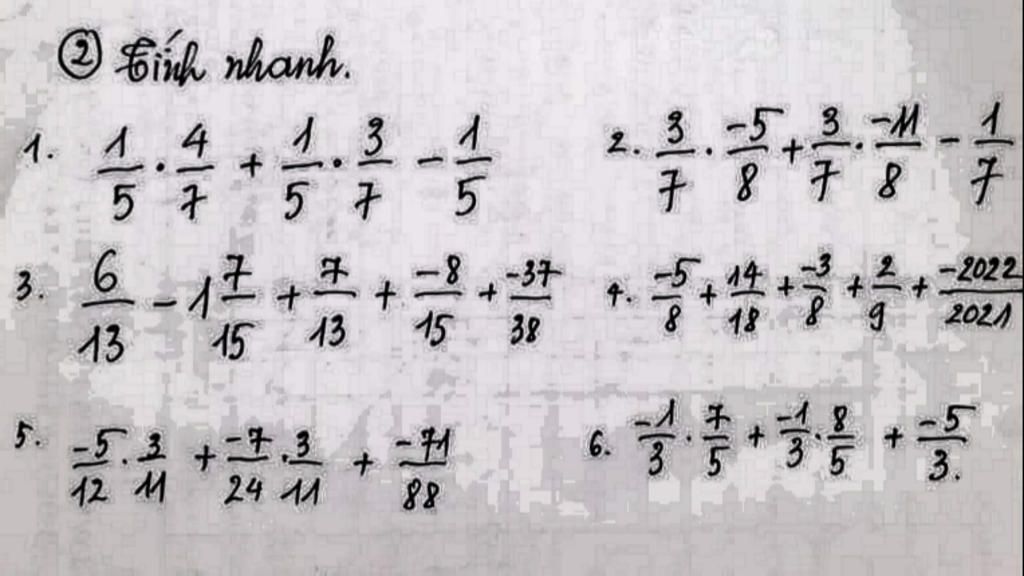 ② Tính nhanh.
1. 1/5 · 4/7 + 1/5 · 3/7 − 1/5
2. 3/7 · −5/8 + 3/7 · −11/8 − 1/7
3. 6/13 − 1 7/15 + 7/13 + −8/15 + −37/38
4. −5/8 + 14/18 + −3/8 + 2/9 + −2022/2021
5. −5/12 · 3/11 + −7/24 · 3/11 + −71/88
6. −1/3 · 7/5 + −1/3 · 8/5 + −5/3.